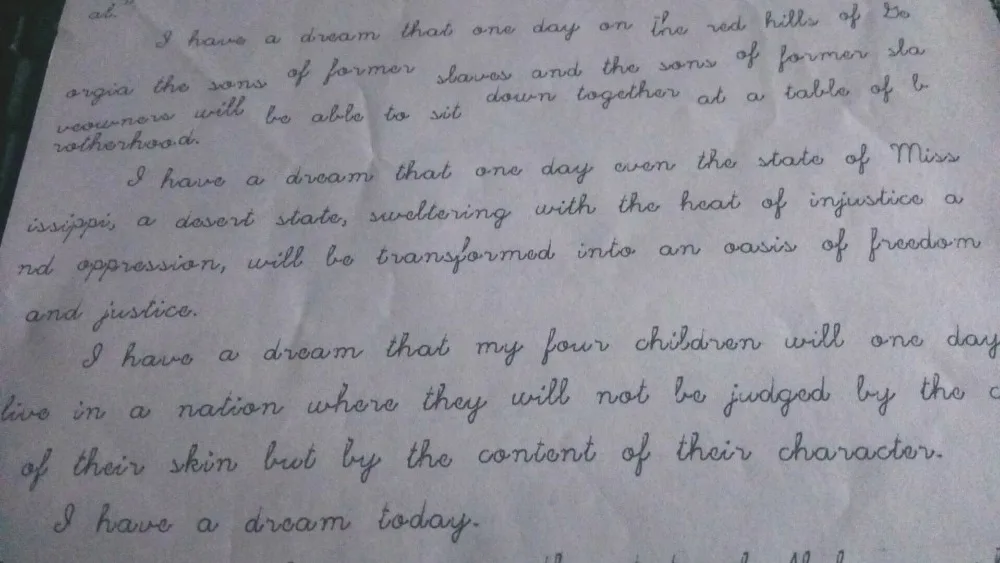 al."
I have a dream that one day on the red hills of Ge
orgia the sons of former slaves and the sons of former sla
veowners will be able to sit down together at a table of b
rotherhood.
I have a dream that one day even the state of Miss
issippi, a desert state, sweltering with the heat of injustice a
nd oppression, will be transformed into an oasis of freedom
and justice.
I have a dream that my four children will one day
live in a nation where they will not be judged by the c
of their skin but by the content of their character.
I have a dream today.